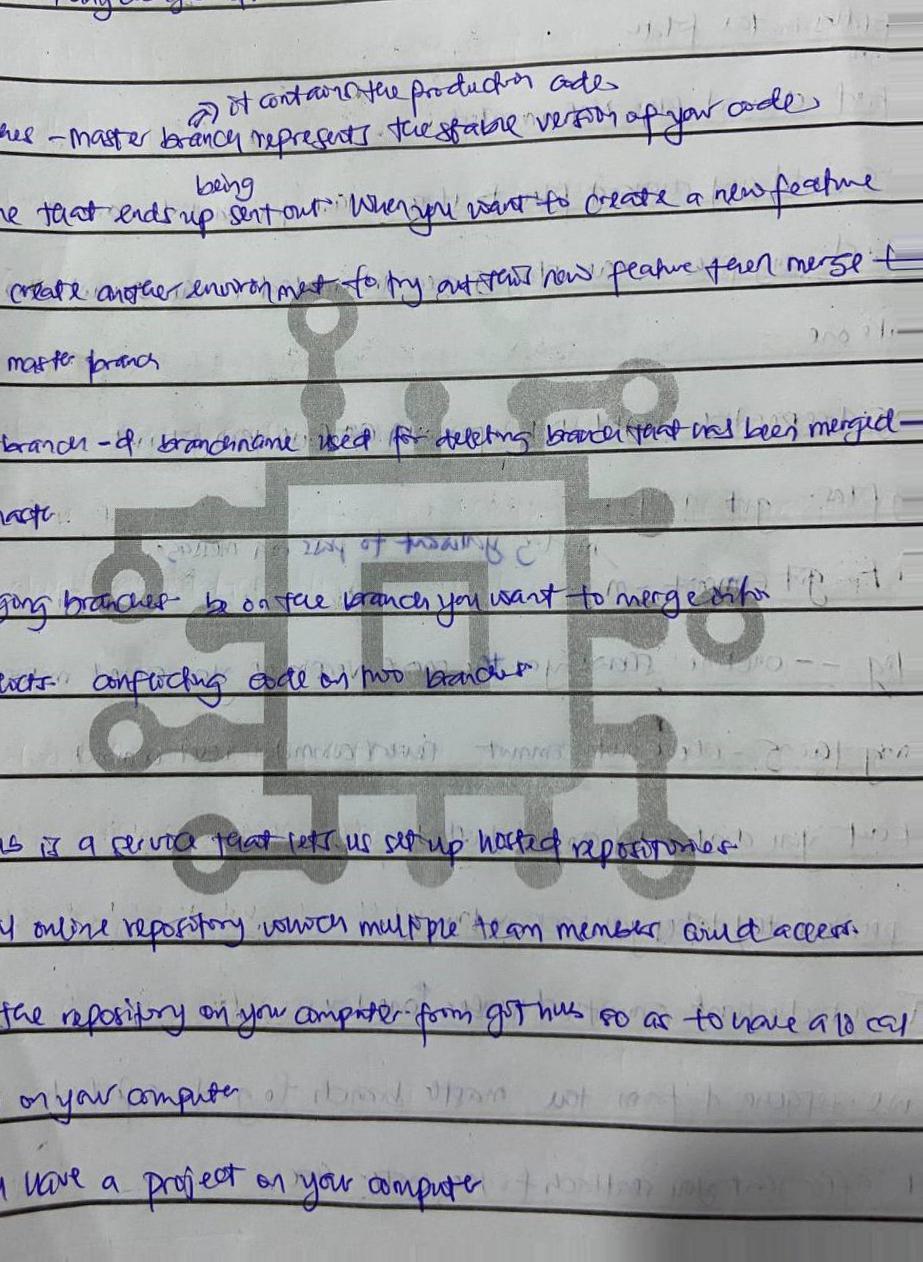 it contains the production code
hes - master branch represents the stable version of your code
being
e that ends up sent out. When you want to create a new feature
create another environment to try out this new feature then merge t
master branch
branch -d branchname used for deleting branch that has been merged
aste
ging branches be on the branch you want to merge
icts conflicting code on two branches
is a service that lets us set up hosted repositories
online repository which multiple team members could access.
the repository on your computer from github so as to have a local
on your computer
have a project on your computer